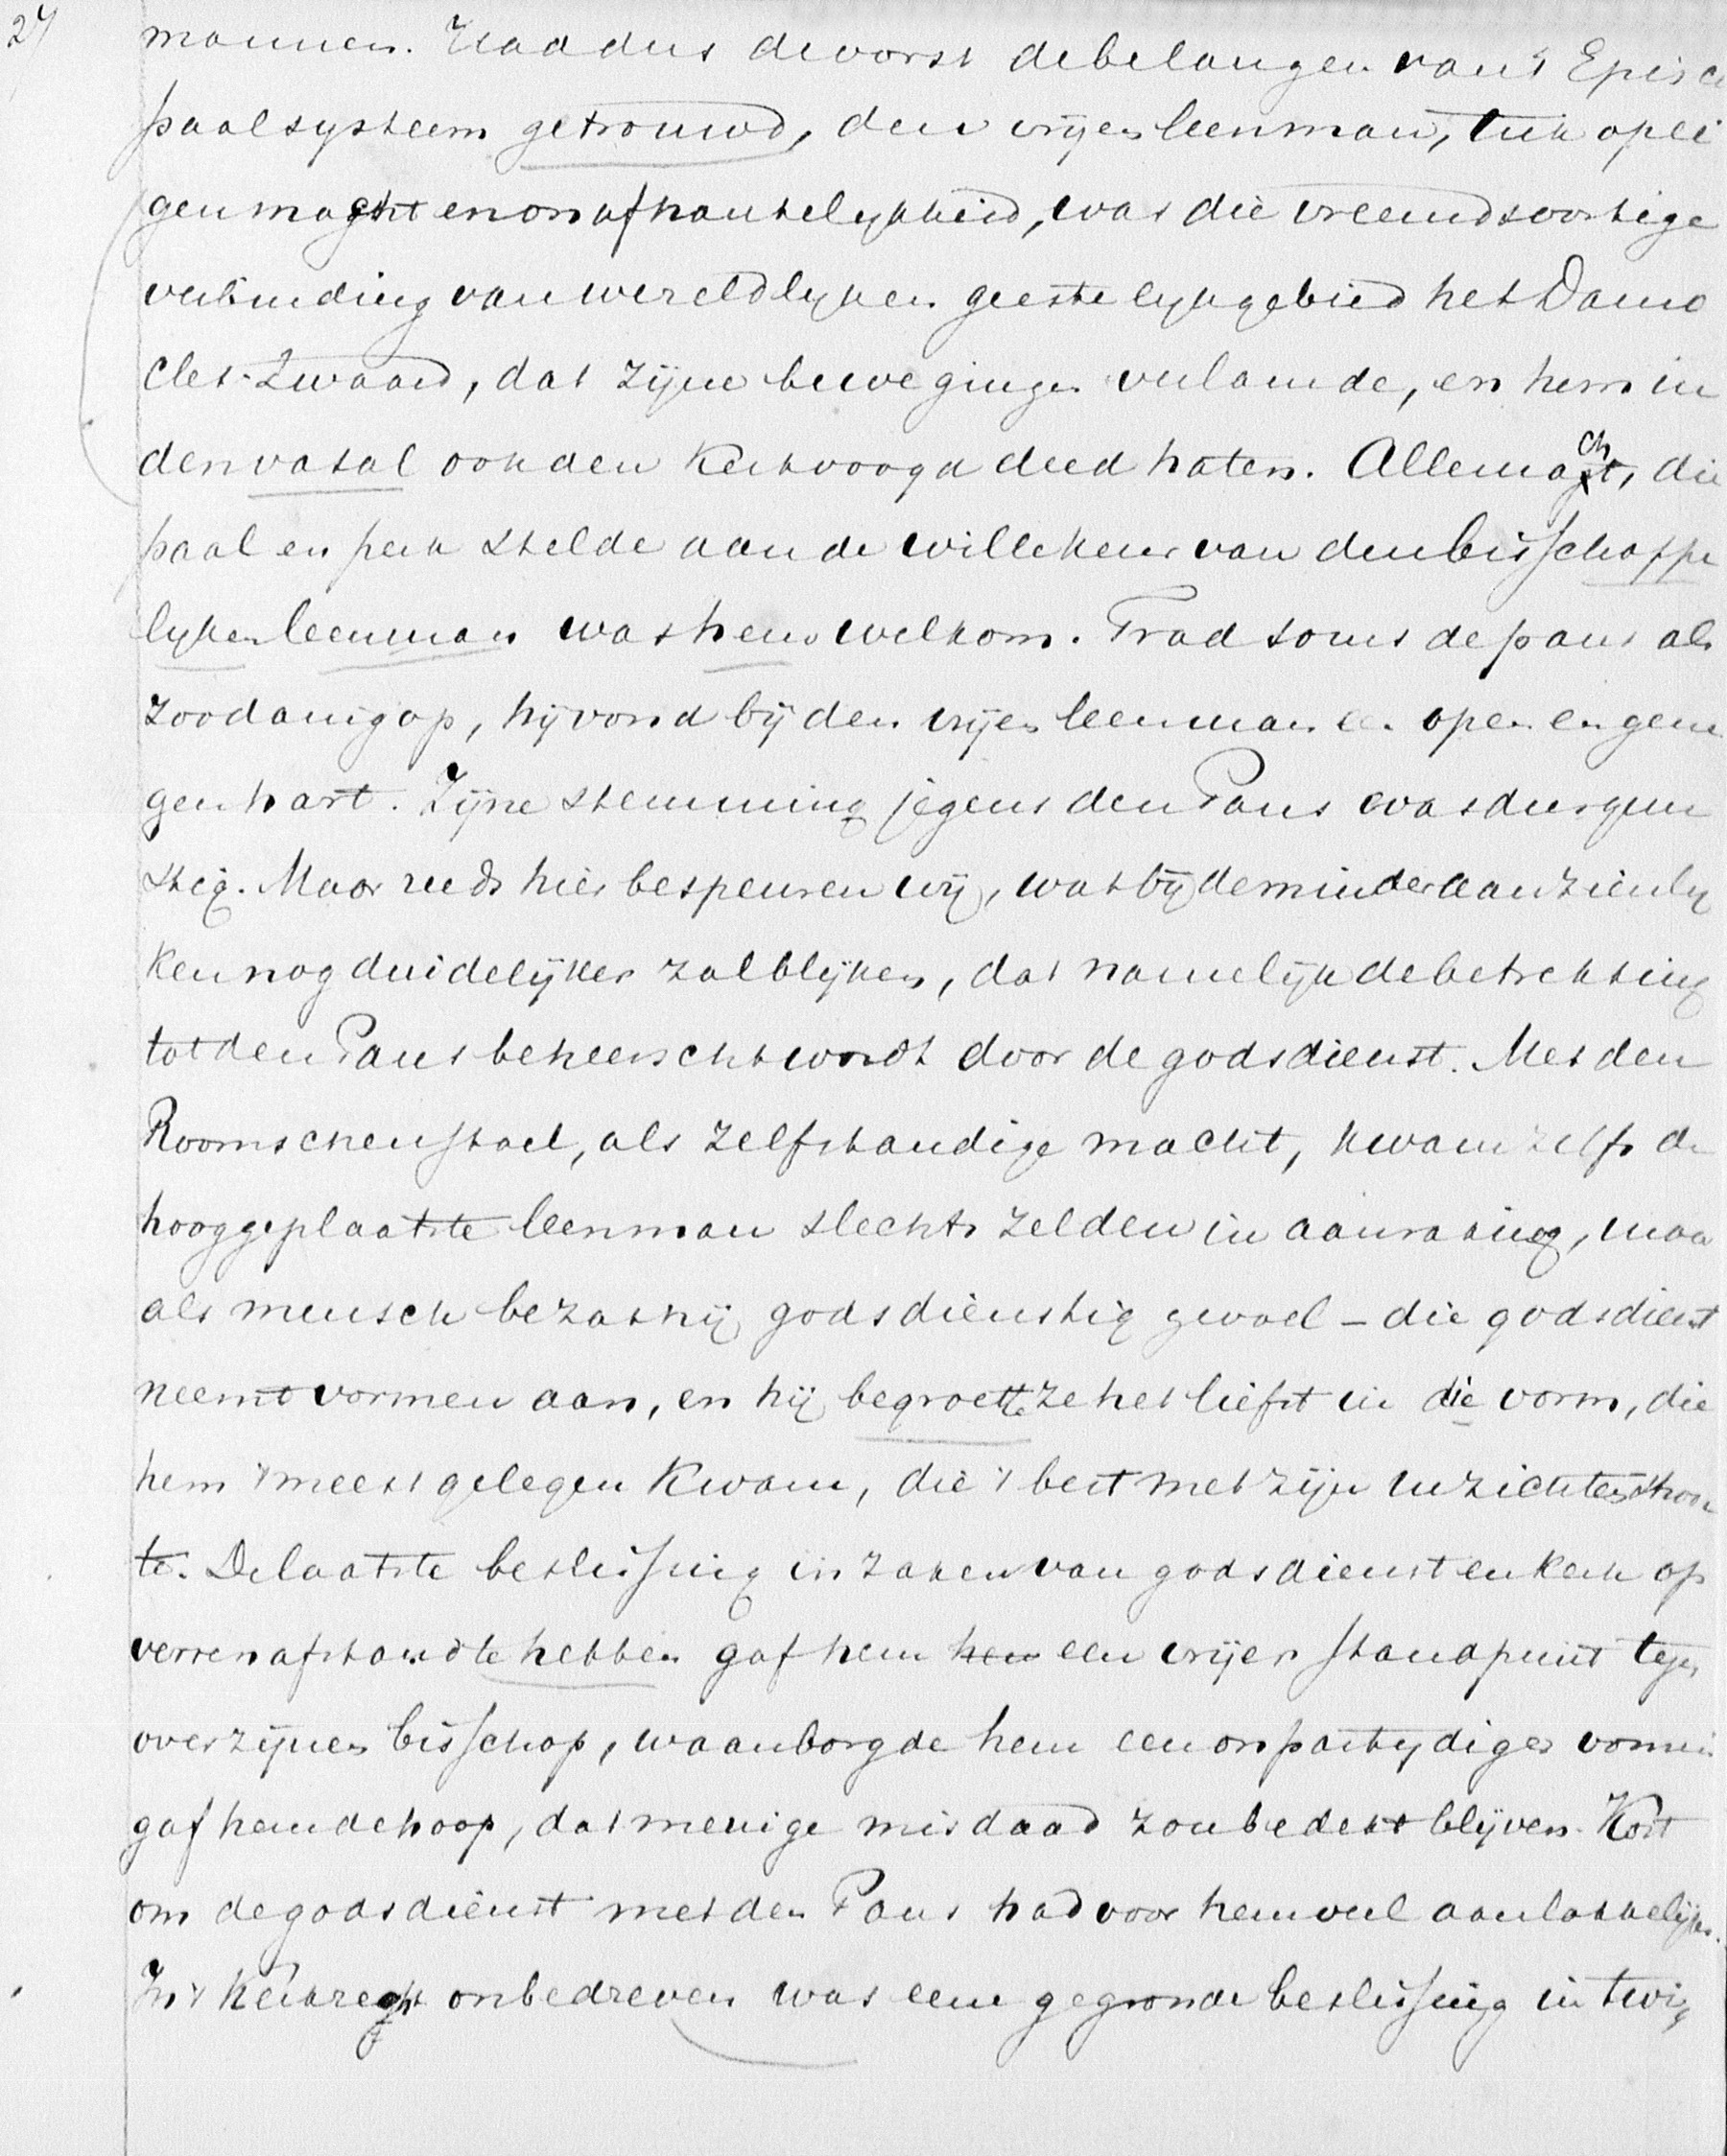 27
mannen. Had dus de vorst de belangen van 't Episco
paal systeem getrouwd, den vrijen leenman, tuk op ei
gen macht en onafhankelykheid, was die vreemdsoortige
verbinding van wereldlyk en geestelyk gebied het Damo
cles-Zwaard, dat zijne bewegingen verlamde, en hem in
den vasal ook den Kerkvoogd deed haten. Alle macht, die
paal en perk stelde aan de willekeur van den bisschoppe
lyken leenman was hem welkom. Trad soms de paus als
zoodanig op, hij vond bij den vrijen leenman een open en gene
gen hart. Zijne stemming jegens den Paus was dus gun
stig. Maar reeds hier bespeuren wij, wat bij de minder aanzienly
ken nog duidelijker zal blijken, dat namelijk de betrekking
tot den Paus beheerscht wordt door de godsdienst. Met den
Roomschen stoel, als zelfstandige macht, kwam zelfs de
hooggeplaatste leenman slechts zelden in aanraking, maa
als mensch bezat hij godsdienstig gevoel - die godsdienst
neemt vormen aan, en hij begroette ze het liefst in die vorm, die
hem 't meest gelegen Kwam, die 't best met zijn inzichten stroo
te. De laatste beslissing in zaken van godsdienst en kerk op
verren afstand te hebben gaf hem hem een vrijer standpunt tegen
over zijnen bisschop, waarborgde hem een onpartydiger vonnis
gaf hem de hoop, dat menige misdaad zou bedekt blijven. Kort
om de godsdienst met den Paus had voor hem veel aanlokkelijks.
In 't Kerkregt onbedreven was eene gegronde beslissing in twij